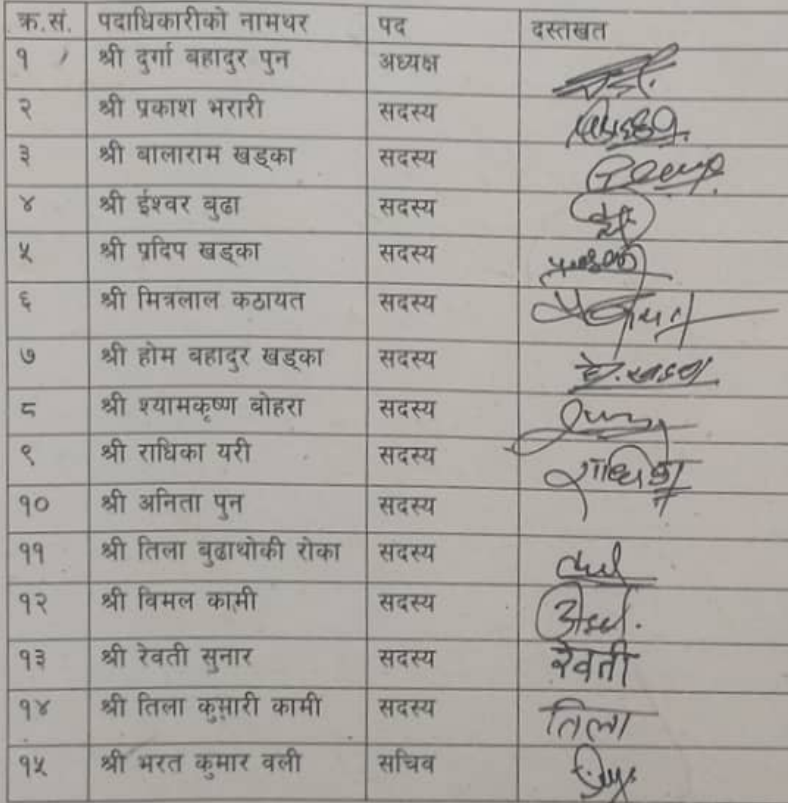 क्र.सं. पदाधिकारीको नामथर पद दस्तखत
१ श्री दुर्गा बहादुर पुन अध्यक्ष
२ श्री प्रकाश भरारी सदस्य
३ श्री बालाराम खड्का सदस्य
४ श्री ईश्वर बुढा सदस्य
५ श्री प्रदिप खड्का सदस्य
६ श्री मित्रलाल कठायत सदस्य
७ श्री होम बहादुर खड्का सदस्य हो. खड्का
८ श्री श्यामकृष्ण बोहरा सदस्य
९ श्री राधिका यरी सदस्य राधिका
१० श्री अनिता पुन सदस्य
११ श्री तिला बुढाथोकी रोका सदस्य
१२ श्री विमल कामी सदस्य
१३ श्री रेवती सुनार सदस्य रेवती
१४ श्री तिला कुमारी कामी सदस्य तिला
१५ श्री भरत कुमार वली सचिव